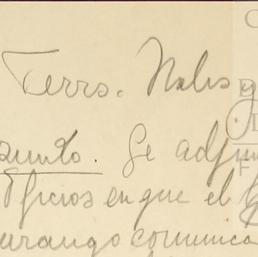 Terrs. Nals
Asunto. Se adjun
Oficios en que el
urango comunica